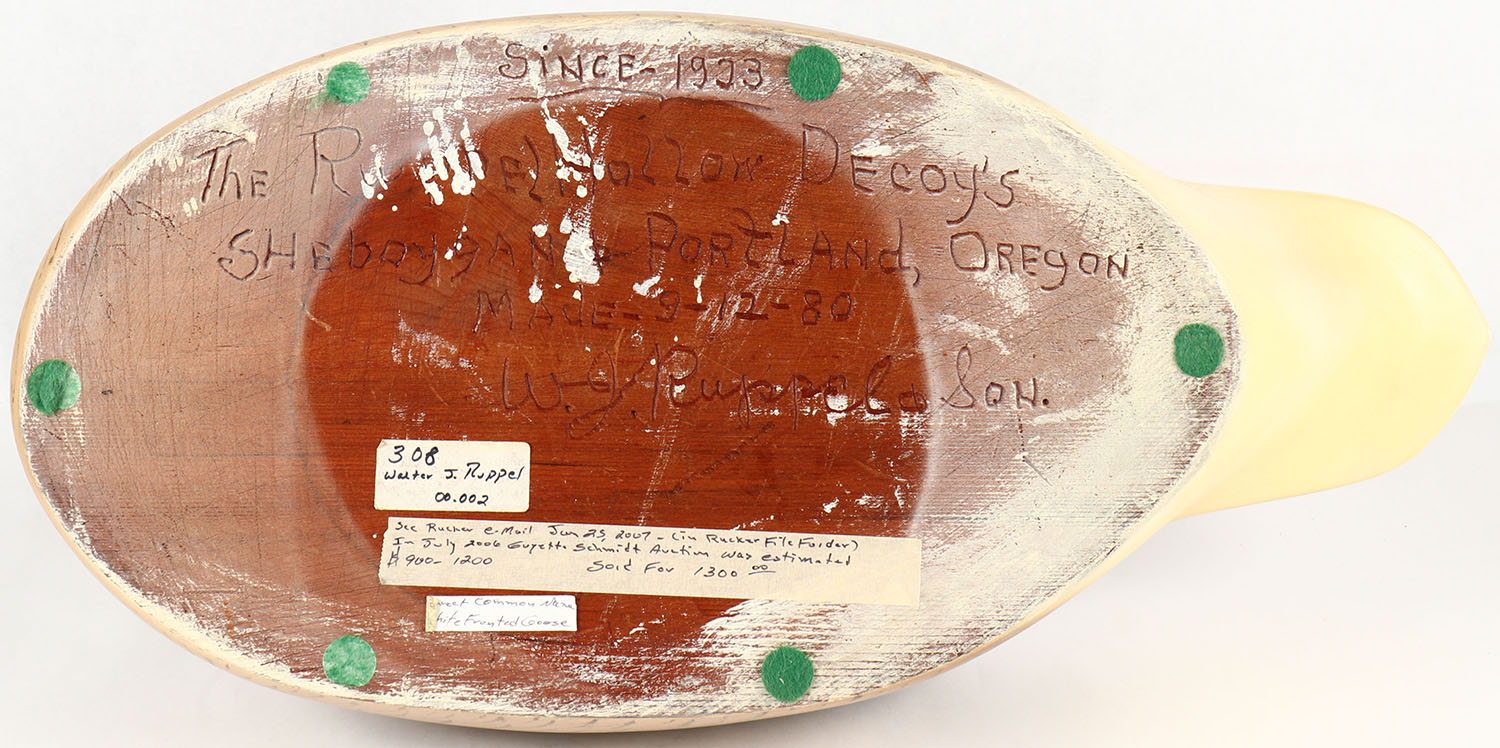 SINCE - 1933
THE Ruppel Hollow DECOY'S
SHEboygAN & PORTLAND, OREGON
MADE - 9-12-80
W.J. Ruppel & Son.
308
Walter J. Ruppel
00.002
See Rucker e-Mail Jan 25, 2007 - (in Rucker File Folder)
In July 2006 Guyette Schmidt Auction was estimated
$900 - 1200 Sold For 1300 00
Common Name
Fronted Goose